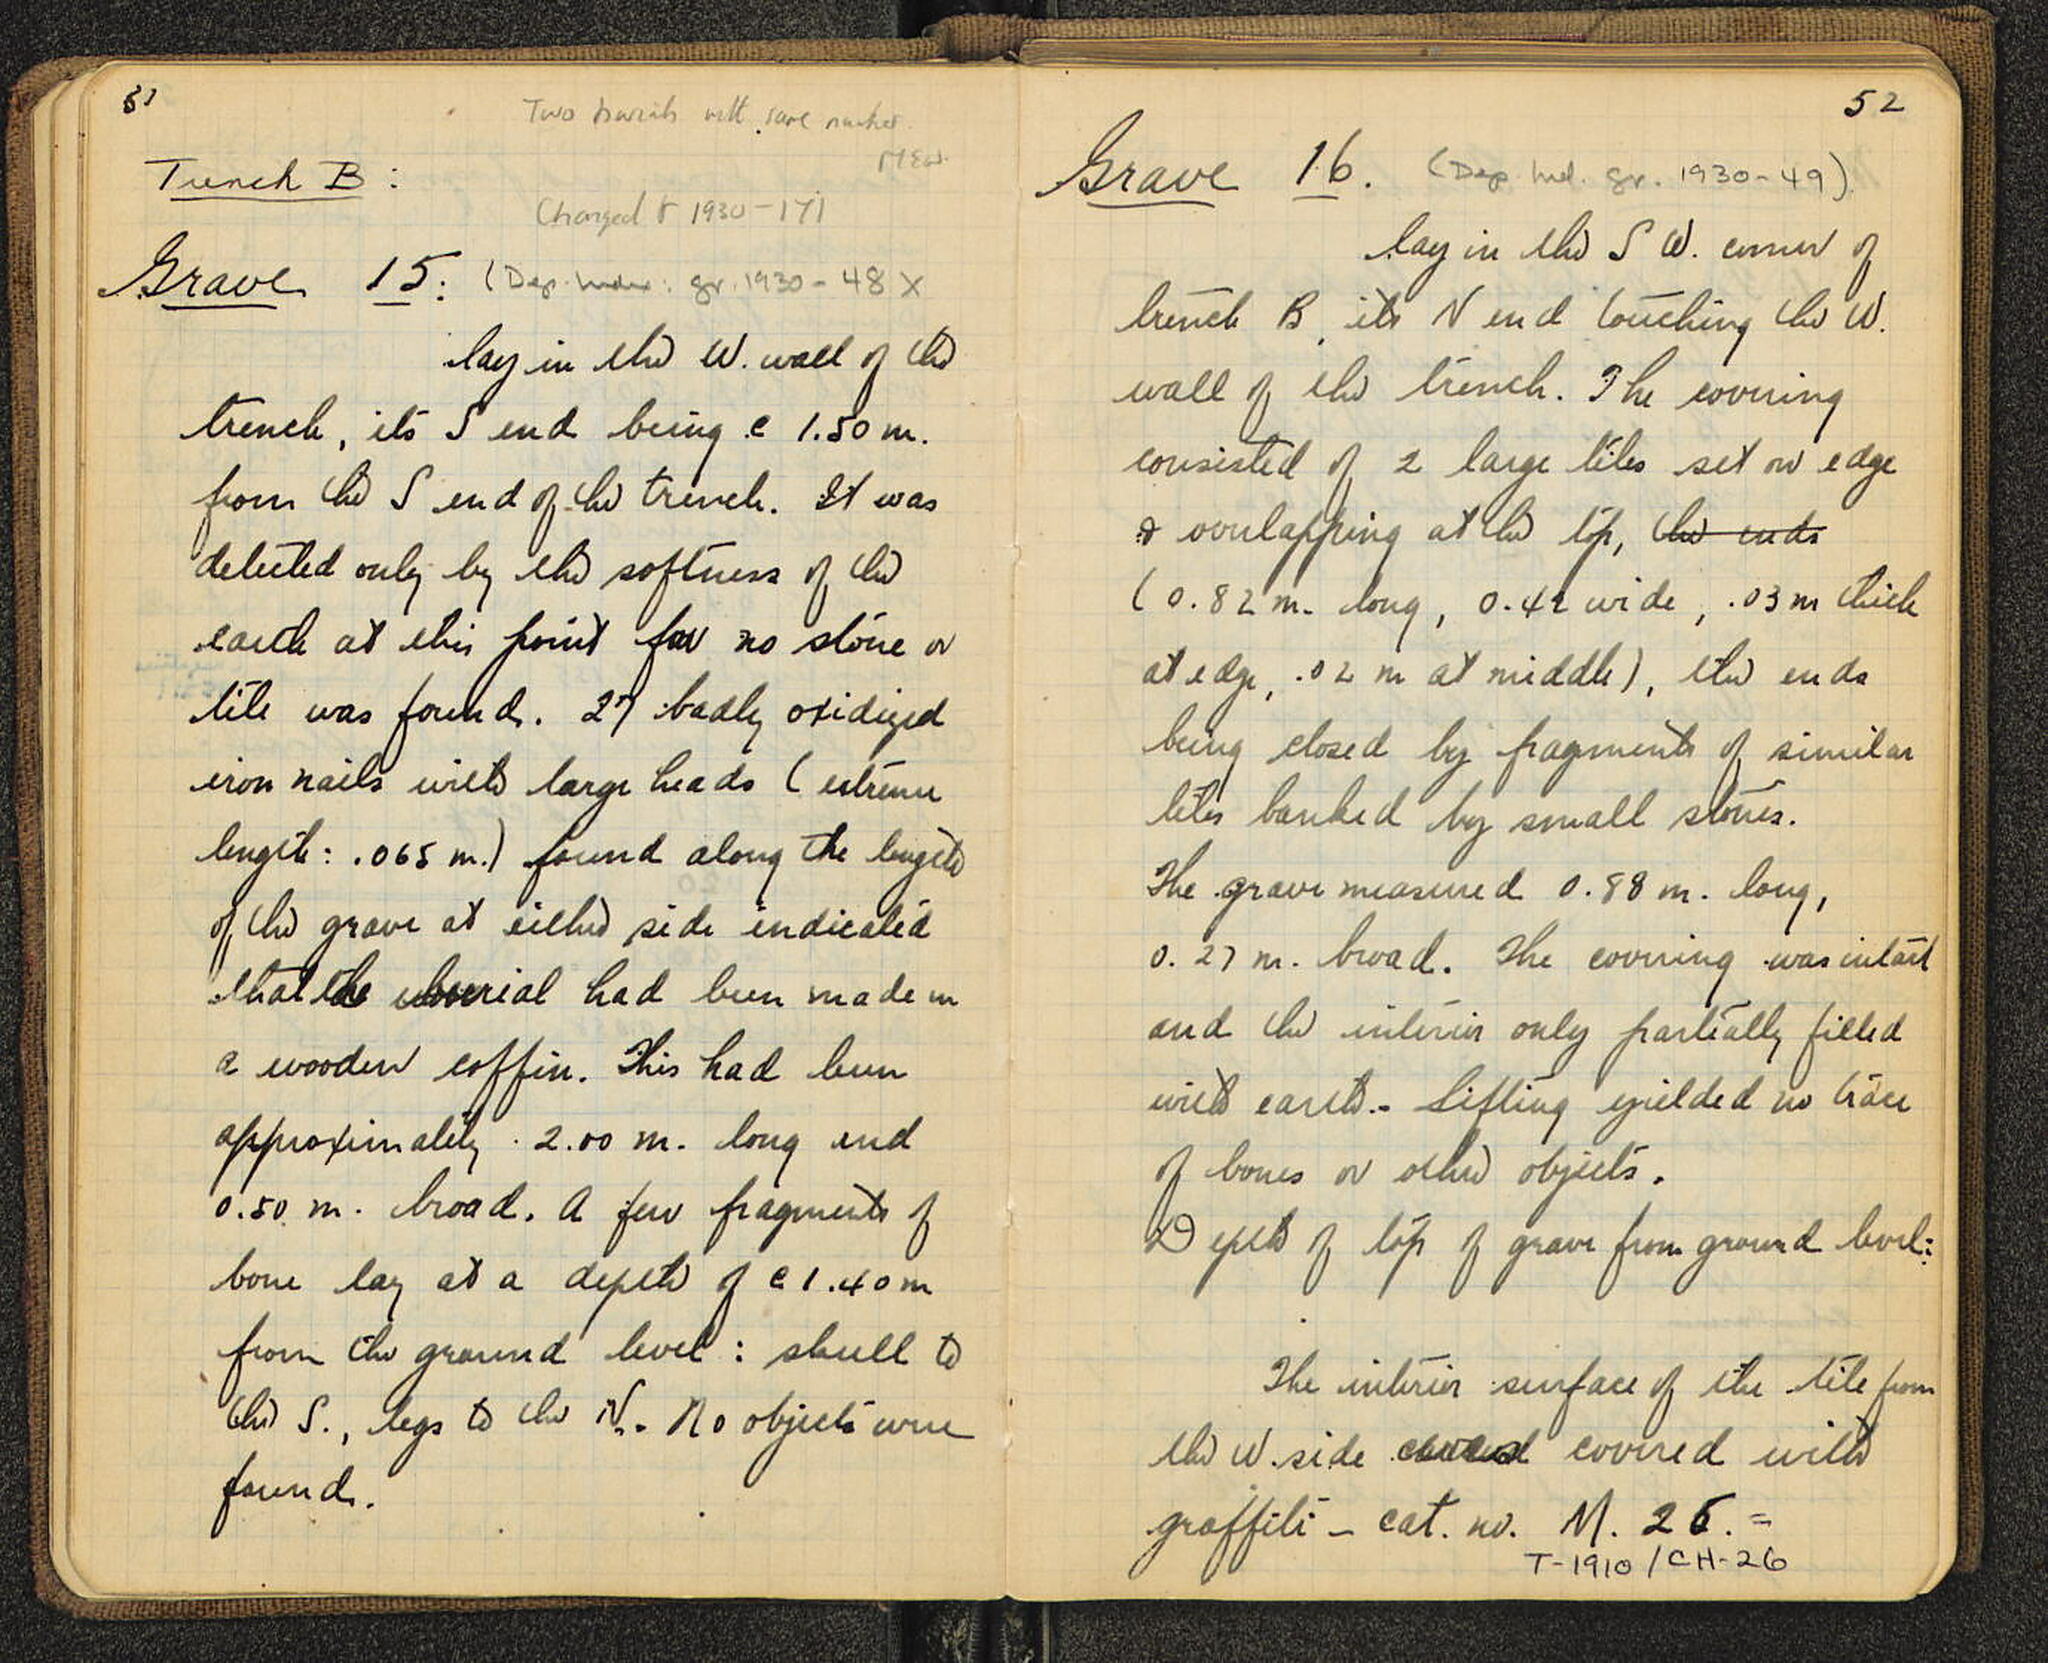 51
Two burials with same number.
MEW.
Trench B:
Changed to 1930-171
Grave 15: (Dep. Index: gr. 1930-48 X
lay in the W. wall of the
trench, its S end being c 1.50 m.
from the S end of the trench. It was
detected only by the softness of the
earth at this point for no stone or
tile was found. 27 badly oxidized
iron nails with large heads (extreme
length: .065 m.) found along the length
of the grave at either side indicated
that the burial had been made in
a wooden coffin. This had been
approximately 2.00 m. long and
0.50 m. broad. A few fragments of
bone lay at a depth of c 1.40 m
from the ground level: skull to
the S., legs to the N. No objects were
found.
52
Grave 16. (Dep. Ind. gr. 1930-49)
lay in the S W. corner of
trench B, its N end touching the W.
wall of the trench. The covering
consisted of 2 large tiles set on edge
& overlapping at the top, the ends
(0.82 m. long, 0.42 wide, .03 m thick
at edge, .02 m at middle), the ends
being closed by fragments of similar
tiles banked by small stones.
The grave measured 0.88 m. long,
0.27 m. broad. The covering was intact
and the interior only partially filled
with earth. - Sifting yielded no trace
of bones or other objects.
Depth of top of grave from ground level:
The interior surface of the tile from
the W. side covered with
graffiti - cat. no. M. 26. =
T-1910 / CH-26